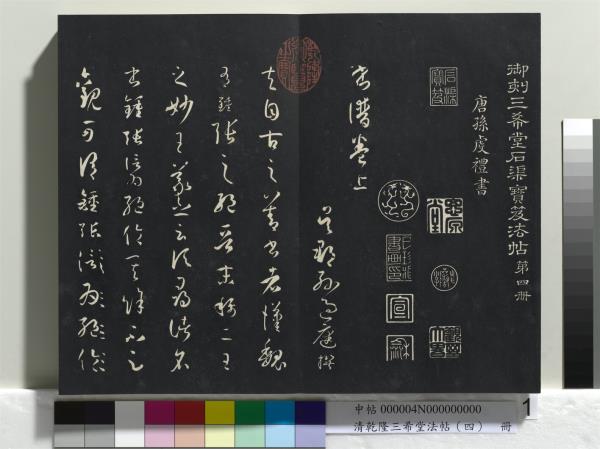 御刻三希堂石渠寶笈法帖第四冊
唐孫虔禮書
石渠寶笈
宣
龢
書譜卷上
吳郡孫過庭撰
夫自古之善書者漢魏
有鍾張之絕晉末稱二王
之妙王羲之云頃尋諸名
書鍾張信為絕倫其餘不足
觀可謂鍾張
1
中帖 000004N000000000
清乾隆三希堂法帖(四) 冊